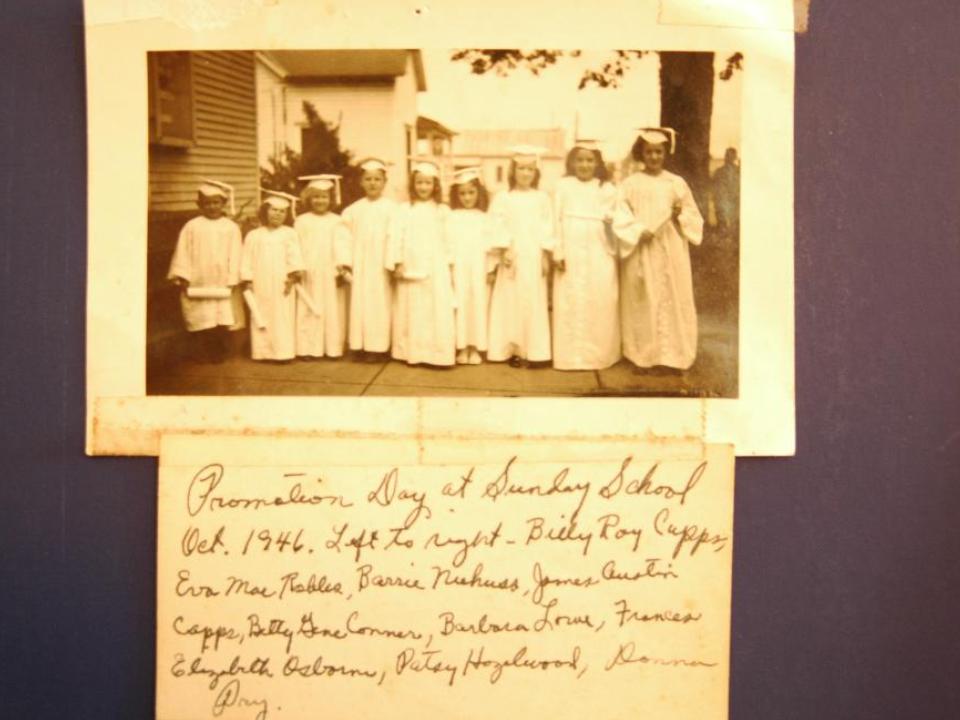 Promotion Day at Sunday School
Oct. 1946. Left to right - Billy Roy Capps,
Eva Mae Robles, Barrie Niehuss, James Austin
Capps, Betty Gene Conner, Barbara Lowe, Frances
Elizabeth Osborne, Patsy Hazelwood, Donna